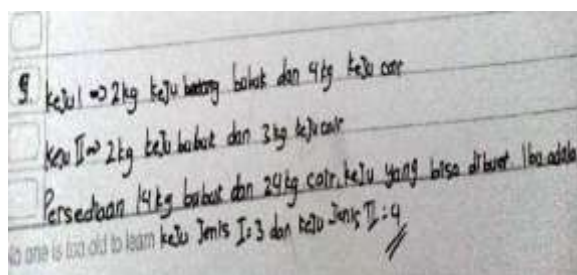 9. Keju I => 2kg keju batang bubuk dan 4kg keju cair
Keju II => 2kg keju bubuk dan 3kg keju cair
Persediaan 14kg bubuk dan 24kg cair. keju yang bisa dibuat Ibu adala
o one is too old to learn keju Jenis I = 3 dan keju Jenis II = 4